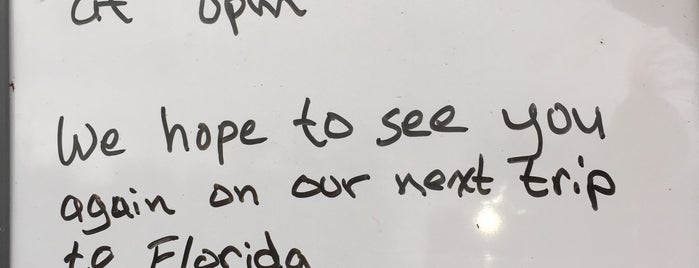 at 6pm
We hope to see you
again on our next trip
to Florida